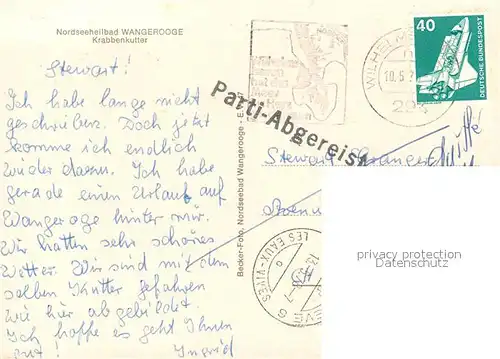 Nordseeheilbad WANGEROOGE
Krabbenkutter
Stewart!
Ich habe lange nicht
geschrieben. Doch jetzt
komme ich endlich
wieder dazu. Ich habe
gerade einen Urlaub auf
Wangeroge hinter mir.
Wir hatten sehr schönes
Wetter. Wir sind mit dem
selben Kutter gefahren
wie hier abgebildet.
Ich hoffe es geht Ihnen
gut! Ingrid
Becker-Foto, Nordseebad Wangerooge
Parti-Abgereist
WILHELM
10.5.
40
DEUTSCHE BUNDESPOST
Stewart
LES EAUX-VIVES
privacy protection
Datenschutz